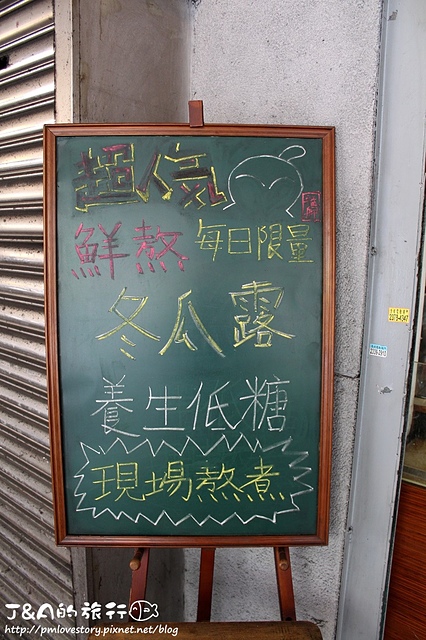 超人氣
鮮熬 每日限量
冬瓜露
養生低糖
現場熬煮
J&A的旅行
http://pmlovestory.pixnet.net/blog